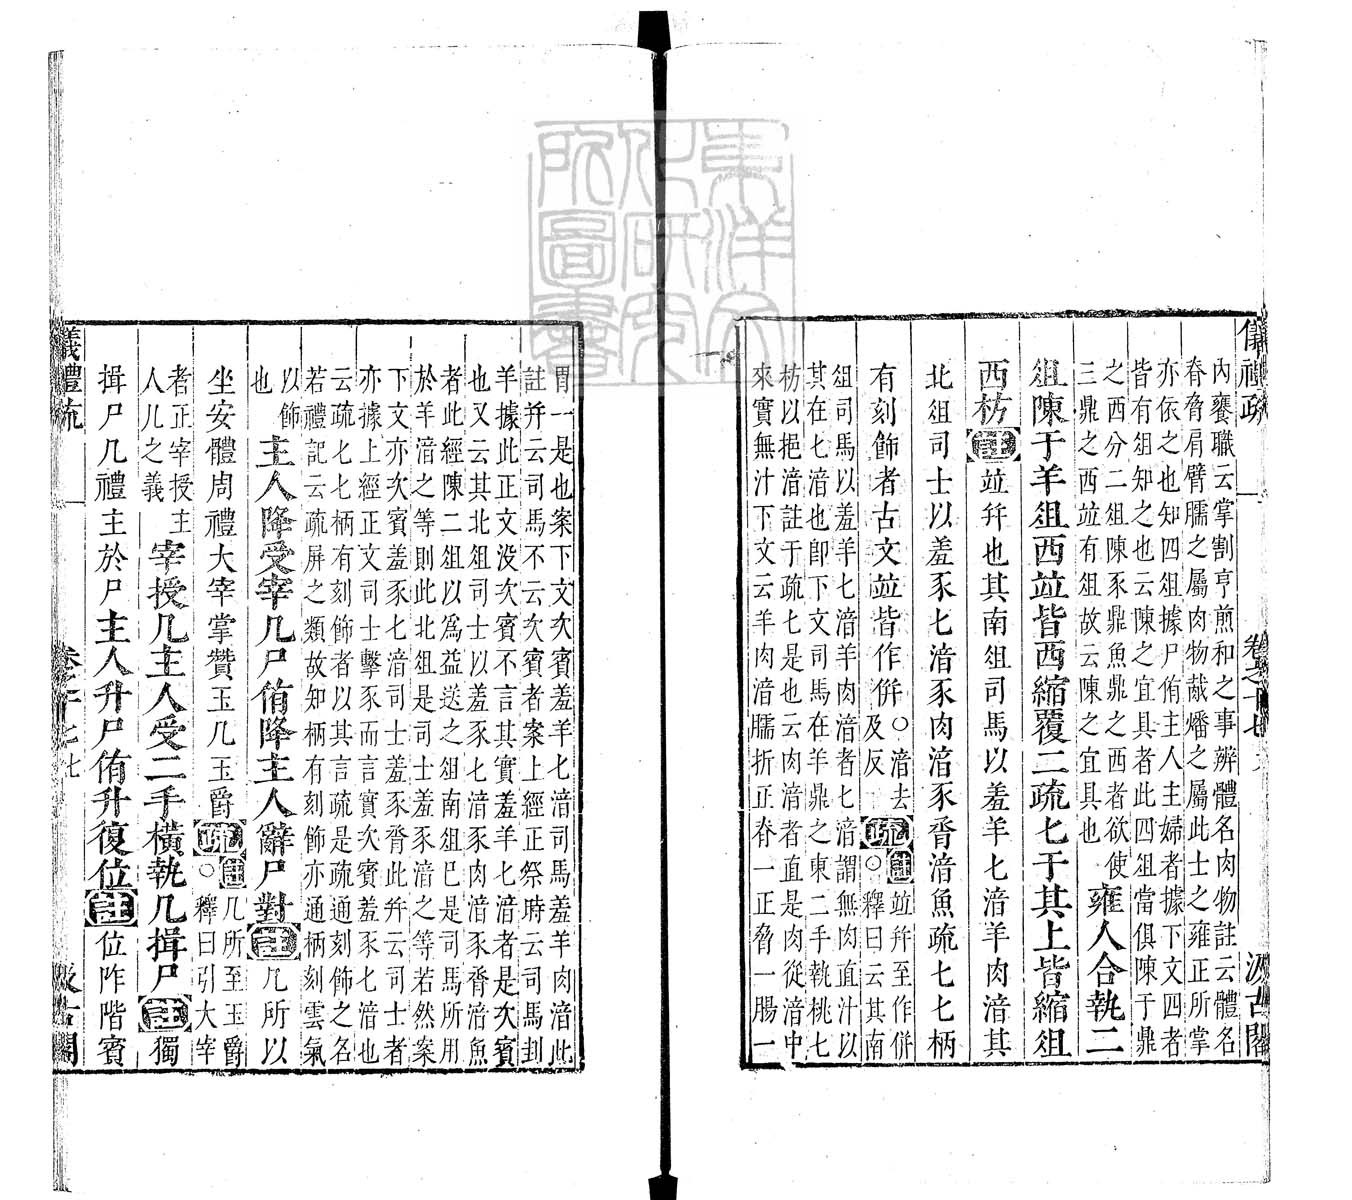 儀禮疏 卷之十七 六 汲古閣
內饔職云掌割亨煎和之事辨體名肉物註云體名
脊脅肩臂臑之屬肉物胾燔之屬此士之雍正所掌
亦依之也知四俎據尸侑主人主婦者據下文四者
皆有俎知之也云陳之宜具者此四俎當俱陳于鼎
之西分二俎陳豕鼎魚鼎之西者欲使
三鼎之西竝有俎故云陳之宜具也
雍人合執二
俎陳于羊俎西竝皆西縮覆二疏匕于其上皆縮俎
西枋註竝幷也其南俎司馬以羞羊匕湆羊肉湆其
北俎司士以羞豕匕湆豕肉湆豕脀湆魚疏匕匕柄
有刻飾者古文竝皆作併
○湆去
及反
疏○
註竝幷至作併
釋曰云其南
俎司馬以羞羊匕湆羊肉湆者匕湆謂無肉直汁以
其在匕湆也卽下文司馬在羊鼎之東二手執桃匕
枋以挹湆註于疏匕是也云肉湆者直是肉從湆中
來實無汁下文云羊肉湆臑折正脊一正脅一腸一
胃一是也案下文次賓羞羊匕湆司馬羞羊肉湆此
註幷云司馬不云次賓者案上經正祭時云司馬刲
羊據此正文没次賓不言其實羞羊匕湆者是次賓
也又云其北俎司士以羞豕匕湆豕肉湆豕脀湆魚
者此經陳二俎以為益送之俎南俎巳是司馬所用
於羊湆之等則此北俎是司士羞豕湆之等若然案
下文亦次賓羞豕匕湆司士羞豕脀此幷云司士者
亦據上經正文司士擊豕而言實次賓羞豕匕湆也
云疏匕匕柄有刻飾者以其言疏是疏通刻飾之名
若禮記云疏屏之類故知柄有刻飾亦通柄刻雲氣
以飾
也
主人降受宰几尸侑降主人辭尸對註几所以
坐安體周禮大宰掌贊玉几玉爵疏○
註几所至玉爵
釋曰引大宰
者正宰授主
人几之義
宰授几主人受二手橫執几揖尸註獨
揖尸几禮主於尸主人升尸侑升復位註位阼階賓
儀禮疏 卷之十七 七 汲古閣
東洋文化研究所圖書